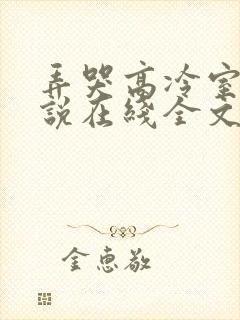 弄哭高冷室
说在线全文
金惠敬